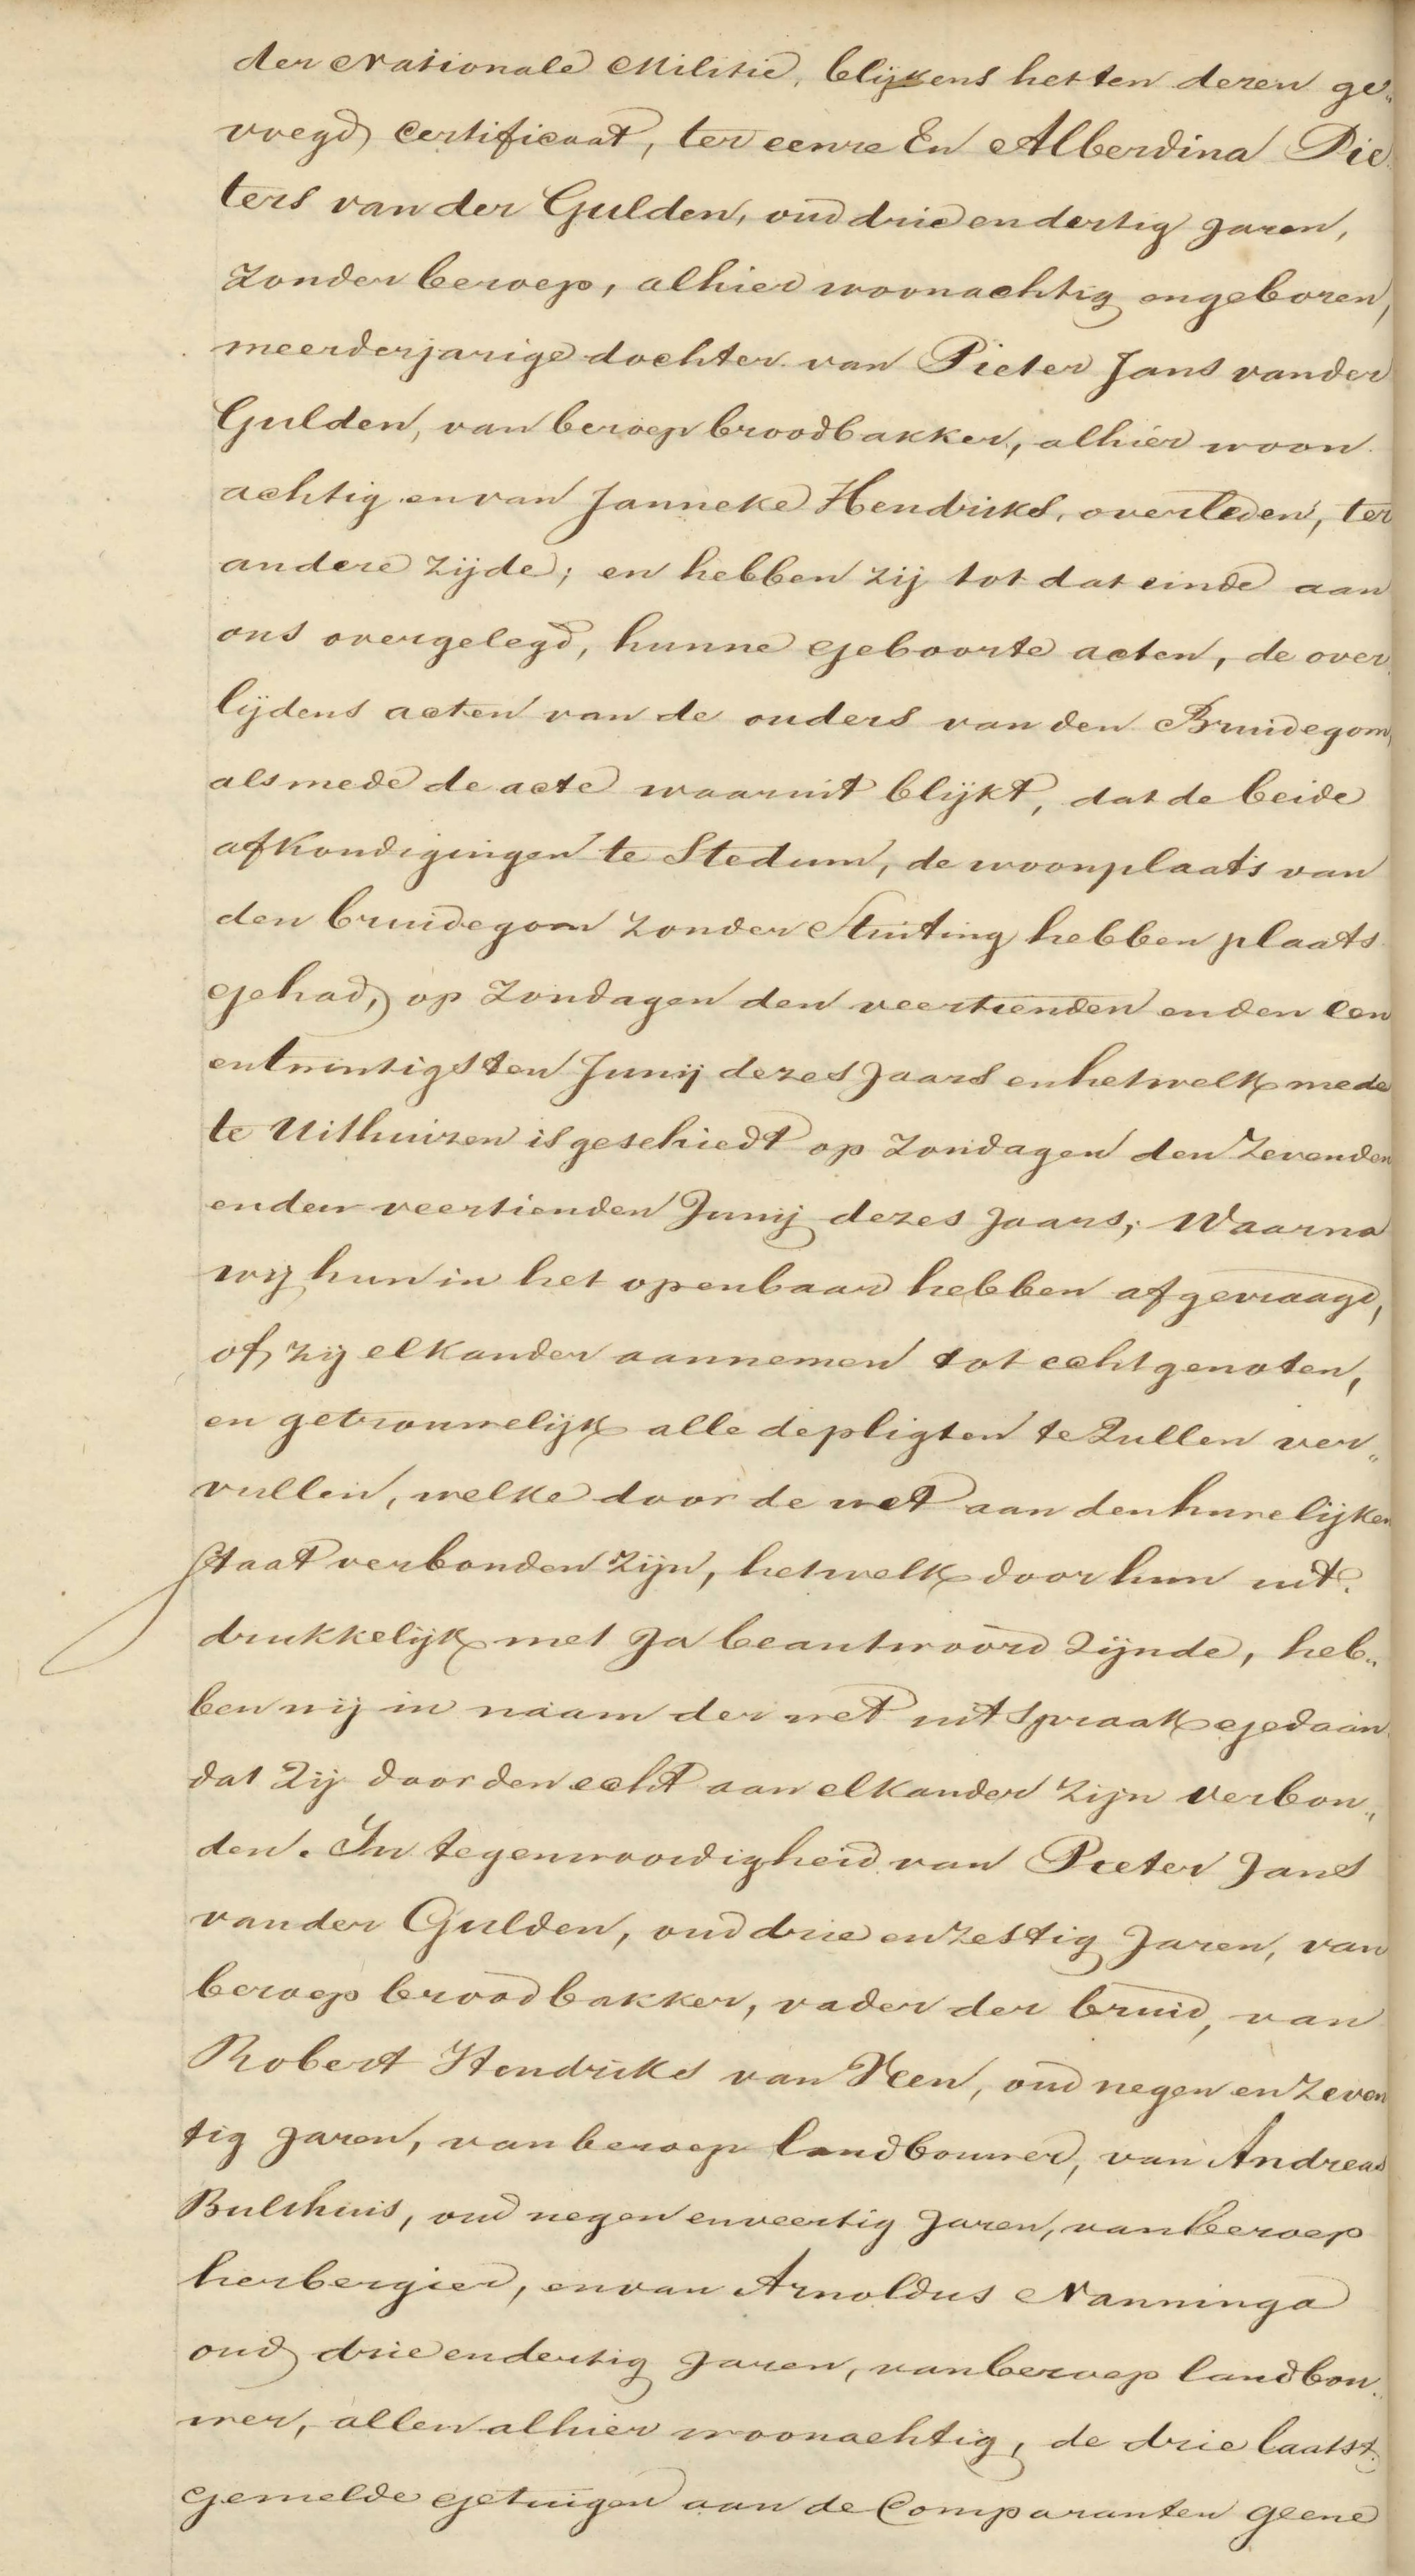 der Nationale Militie, blijkens het ten dezen ge„
voegd certificaat, ter eenre En Alberdina Pie
ters van der Gulden, oud drie en dertig Jaren,
zonder beroep, alhier woonachtig en geboren,
meerderjarige dochter van Pieter Jans van der
Gulden, van beroep broodbakker, alhier woon
achtig en van Janneke Hendriks, overleden, ter
andere zijde; en hebben zij tot dat einde aan
ons overgelegd, hunne geboorte acten, de over
lijdens acten van de ouders van den Bruidegom,
alsmede de acte waaruit blijkt, dat de beide
afkondigingen te Stedum, de woonplaats van
den bruidegom zonder Stuiting hebben plaats
gehad, op Zondagen den veertienden en den een
entwintigsten Junij dezes Jaars en hetwelk mede
te Uithuizen is geschiedt op Zondagen den Zevenden
en den veertienden Junij dezes Jaars; Waarna
wij hun in het openbaar hebben afgevraagd,
of zij elkander aannemen tot echtgenoten,
en getrouwelijk alle de pligten te Zullen ver„
vullen, welke door de wet aan den huwelijken
Staat verbonden Zijn, hetwelk door hun uit
drukkelijk met Ja beantwoord Zijnde, heb„
ben wij in naam der wet uitspraak gedaan
dat Zij door den echt aan elkander Zijn verbon„
den. In tegenwoordigheid van Pieter Jans
van der Gulden, oud drie en zestig Jaren, van
beroep broodbakker, vader der bruid, van
Robert Hendriks van Veen, oud negen en Zeven
tig Jaren, van beroep landbouwer, van Andreas
Bulthuis, oud negen en veertig Jaren, van beroep
herbergier, en van Arnoldus Nanninga
oud drie en dertig Jaren, van beroep landbou„
wer, allen alhier woonachtig, de drie laatst
gemelde getuigen aan de Comparanten geene